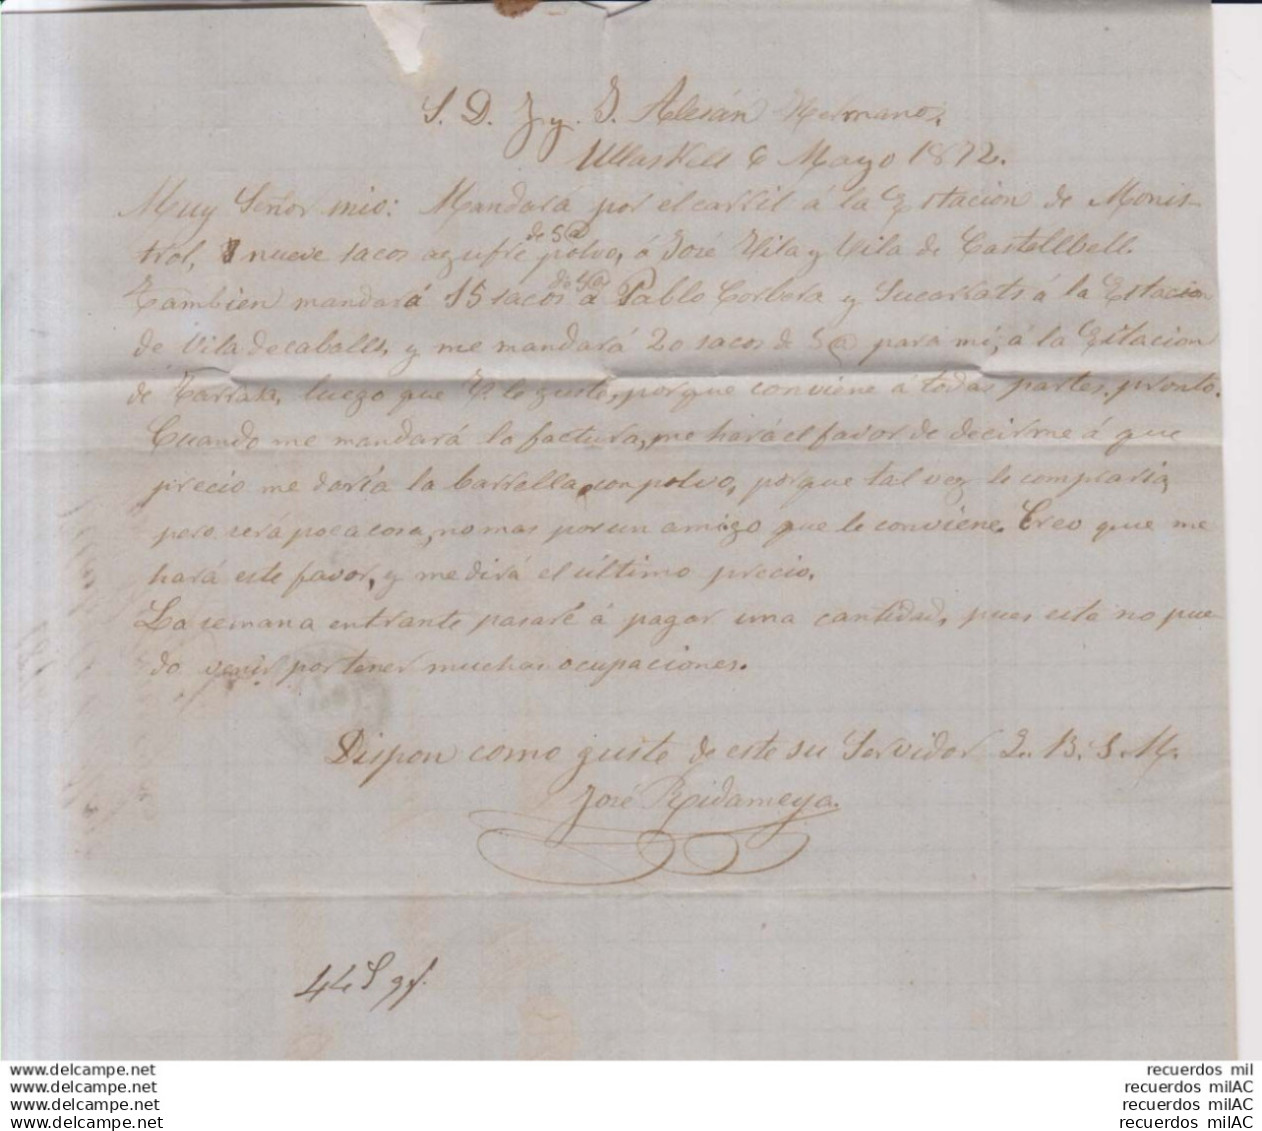 S. D. Jy. J. Alesán Hermanos.
Ullastrell 6 Mayo 1872.
Muy Señor mio: Mandará por el carril á la Estacion de Monis-
de 5@
trol, nueve sacos azufre polvo, á José Vila y Vila de Castellbell.
de 5@
Tambien mandará 15 sacos á Pablo Corbera y Sucarrats á la Estacion
de Viladecaballs, y me mandará 20 sacos de 5@ para mi, á la Estacion
de Tarrasa, luego que V. le guste, porque conviene á todas partes, pronto.
Cuando me mandará la factura, me hará el favor de decirme á que
precio me daría la barrella, con polvo, porque tal vez le compraria,
pero será poca cosa, no mas por un amigo que le conviene. Creo que me
hará este favor, y me dirá el último precio.
La semana entrante pasaré á pagar una cantidad, pues esta no pue-
do venir por tener muchas ocupaciones.
Dispon como guste de este su Servidor Q. B. S. M.
José Ridameya.
44 S
www.delcampe.net
www.delcampe.net
www.delcampe.net
www.delcampe.net
recuerdos mil
recuerdos milAC
recuerdos milAC
recuerdos milAC